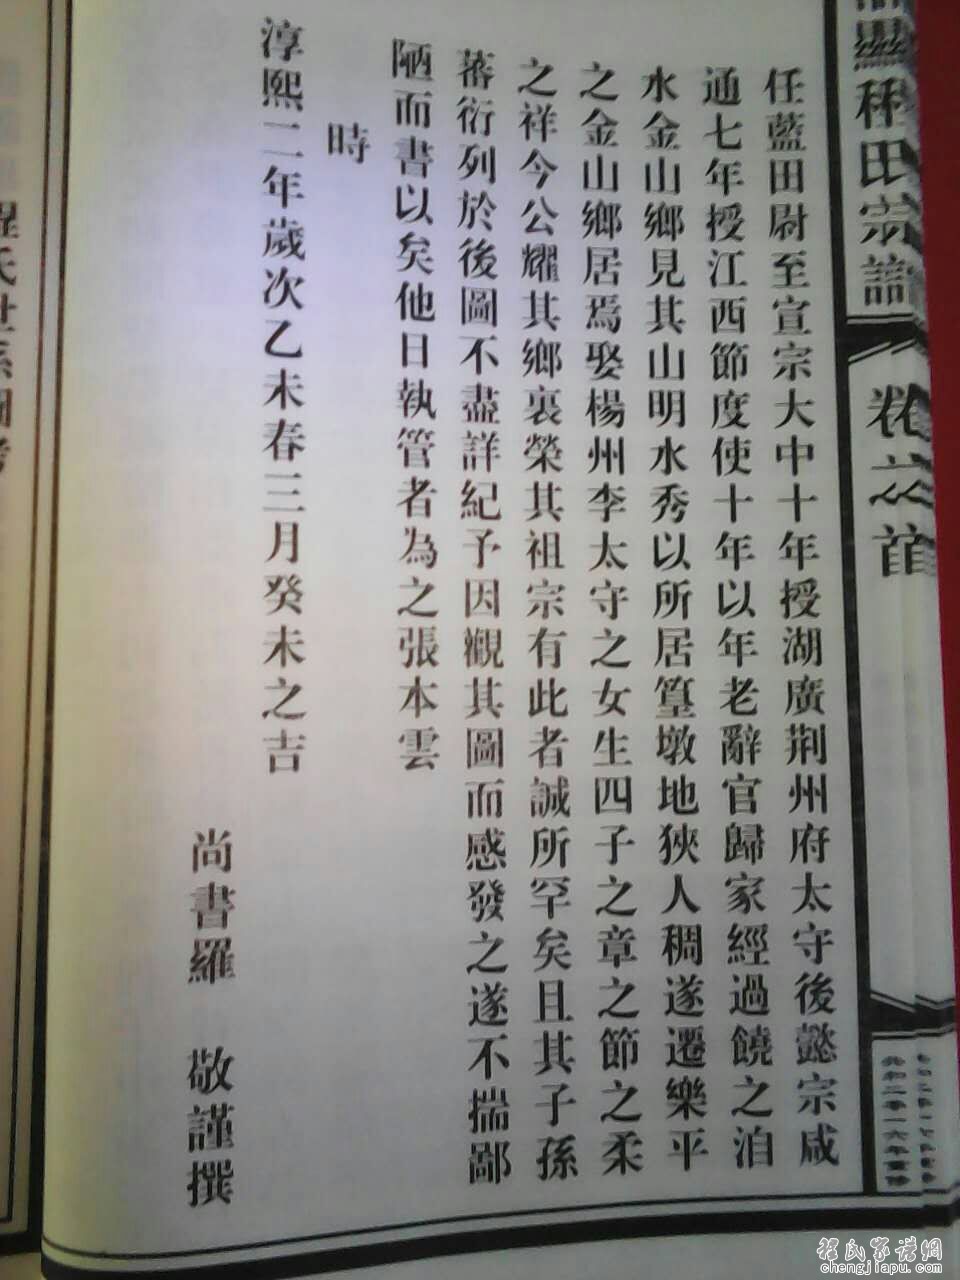 程氏宗譜
卷之首
任藍田尉至宣宗大中十年授湖廣荆州府太守後懿宗咸
通七年授江西節度使十年以年老辭官歸家經過饒之洎
水金山鄉見其山明水秀以所居篁墩地狹人稠遂遷樂平
之金山鄉居焉娶楊州李太守之女生四子之章之節之柔
之祥今公耀其鄉裏榮其祖宗有此者誠所罕矣且其子孫
蕃衍列於後圖不盡詳紀予因觀其圖而感發之遂不揣鄙
陋而書以矣他日執管者為之張本雲
時
淳熙二年歲次乙未春三月癸未之吉
尚書羅 敬謹撰
程氏世系圖考
程氏家谱網
chengjiapu.com